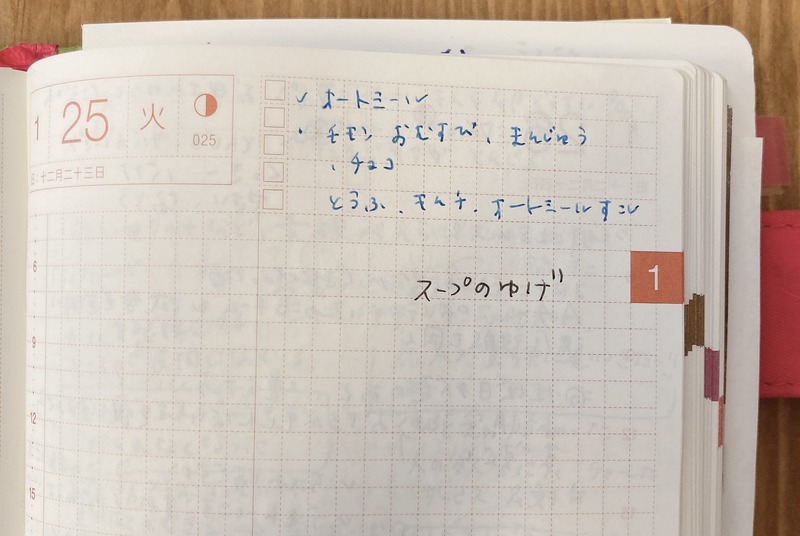 1 25 火
025
旧:十二月二十三日
✓ オートミール
・チモシ おむすび、まんじゅう
、チョコ
とうふ、キムチ、オートミール
スープのゆげ
1
6
9
12
15